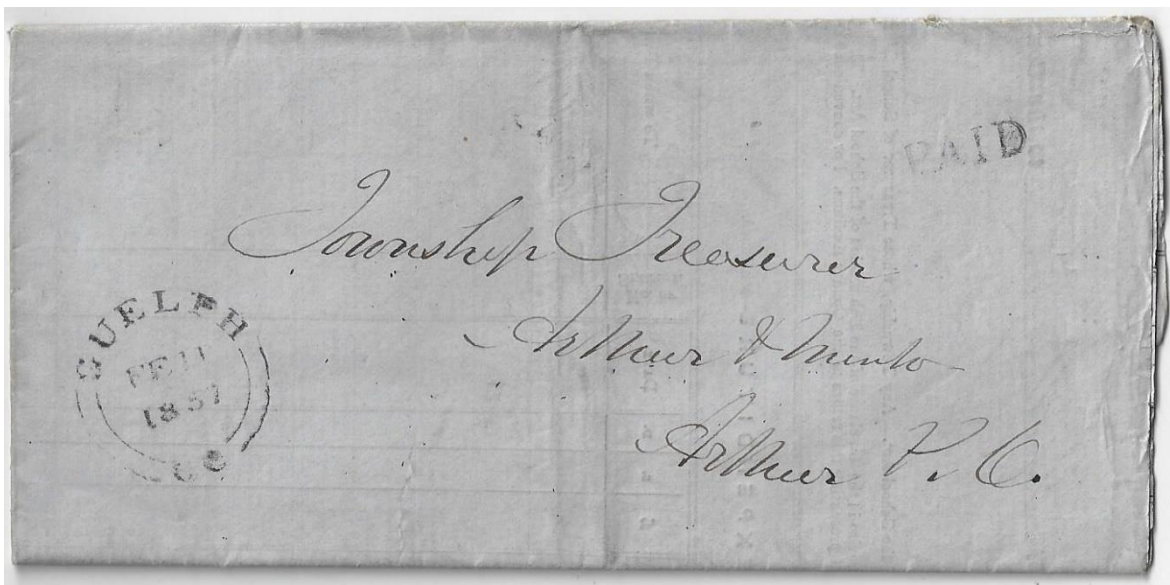 PAID
Township Treasurer
Arthur & Minto
Arthur P. O.
GUELPH
FE 11
1857